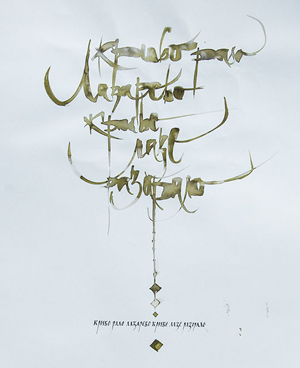 Криво рало
Лазарево
криво
лазе
разорало
криво рало лазарево криво лазе разорало